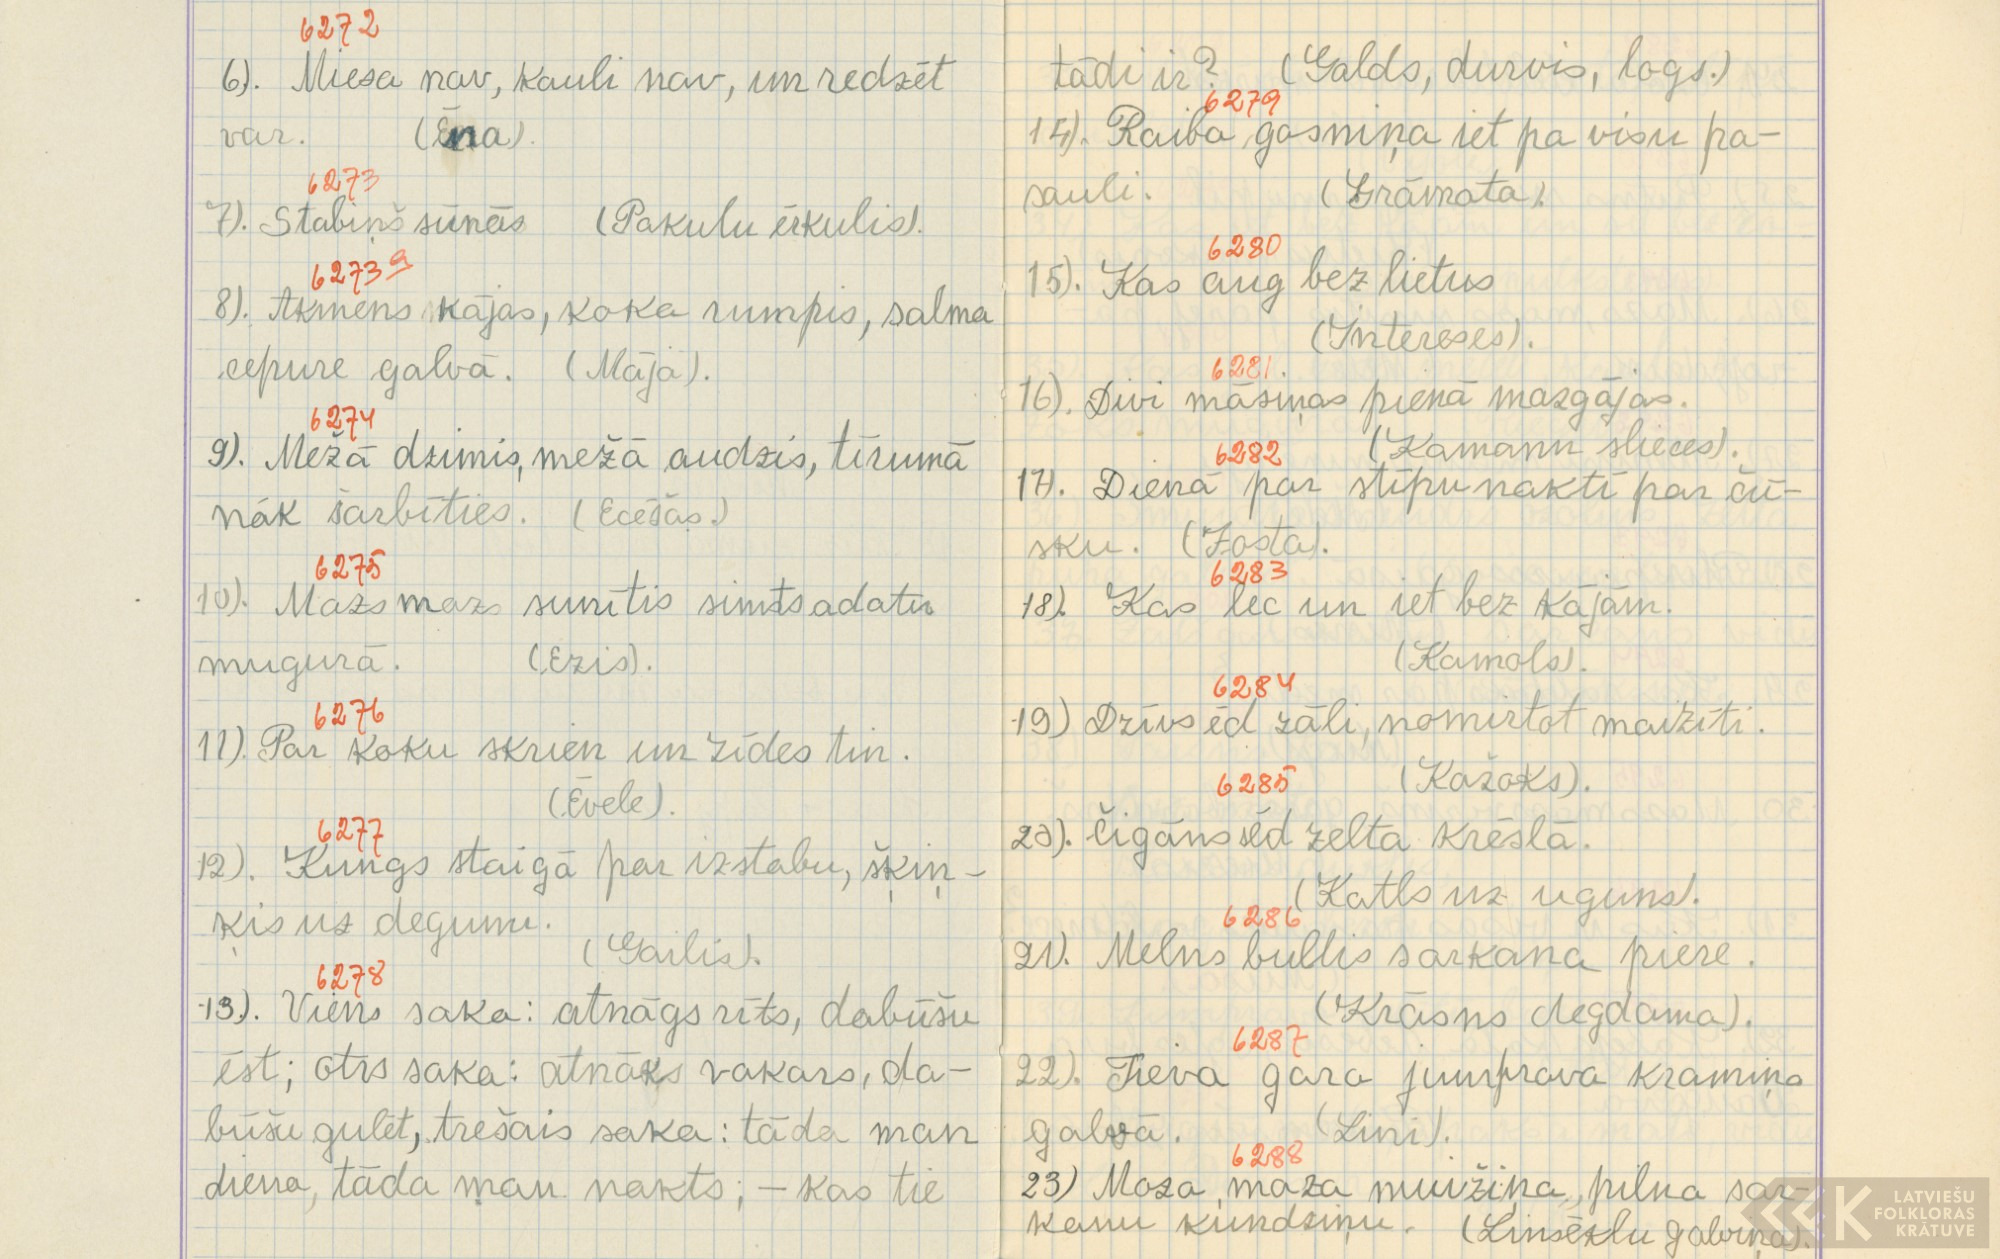 6272
6). Miesa nav, kauli nav, un redzēt
var. (Ēna).
6273
7). Stabiņš sūnās (Pakulu ērkulis).
6273a
8). Akmens kājas, koka rumpis, salma
cepure galvā. (Māja).
6274
9). Mežā dzimis, mežā audzis, tīrumā
nāk šarbīties. (Ecēšas.)
6275
10). Mazs mazs sunītis simts adatu
mugurā. (Ezis).
6276
11). Par koku skrien un zīdes tin.
(Ēvele).
6277
12). Kungs staigā par izstabu, šķiņ-
ķis uz degunu.
(Gailis).
6278
13). Viens saka: atnāgs rīts, dabūšu
ēst; otrs saka: atnāks vakars, da-
būšu gulēt, trešais saka: tāda man
diena, tāda man nakts; – kas tie
tādi ir? (Galds, durvis, logs.)
6279
14). Raiba gosniņa iet pa visu pa-
sauli. (Grāmata).
6280
15). Kas aug bez lietus
(Intereses).
6281.
16). Divi māsiņas pienā mazgājas.
(Kamanu slieces).
6282
17). Dienā par stīpu naktī par čū-
sku. (Josta).
6283
18). Kas lec un iet bez kājām.
(Kamols).
6284
19) Dzīvs ēd zāli, nomirtot maizīti.
(Kažoks).
6285
20). Čigāns sēd zelta krēslā.
(Katls uz uguns).
6286
21). Melns bullis sarkana piere.
(Krāsns degdama).
6287
22). Tieva gara jumprava kramiņa
galvā. (Lini).
6288
23) Maza, maza muižiņa, pilna sar-
kanu kundziņu. (Linsēklu galviņa).
LATVIEŠU
FOLKLORAS
KRĀTUVE